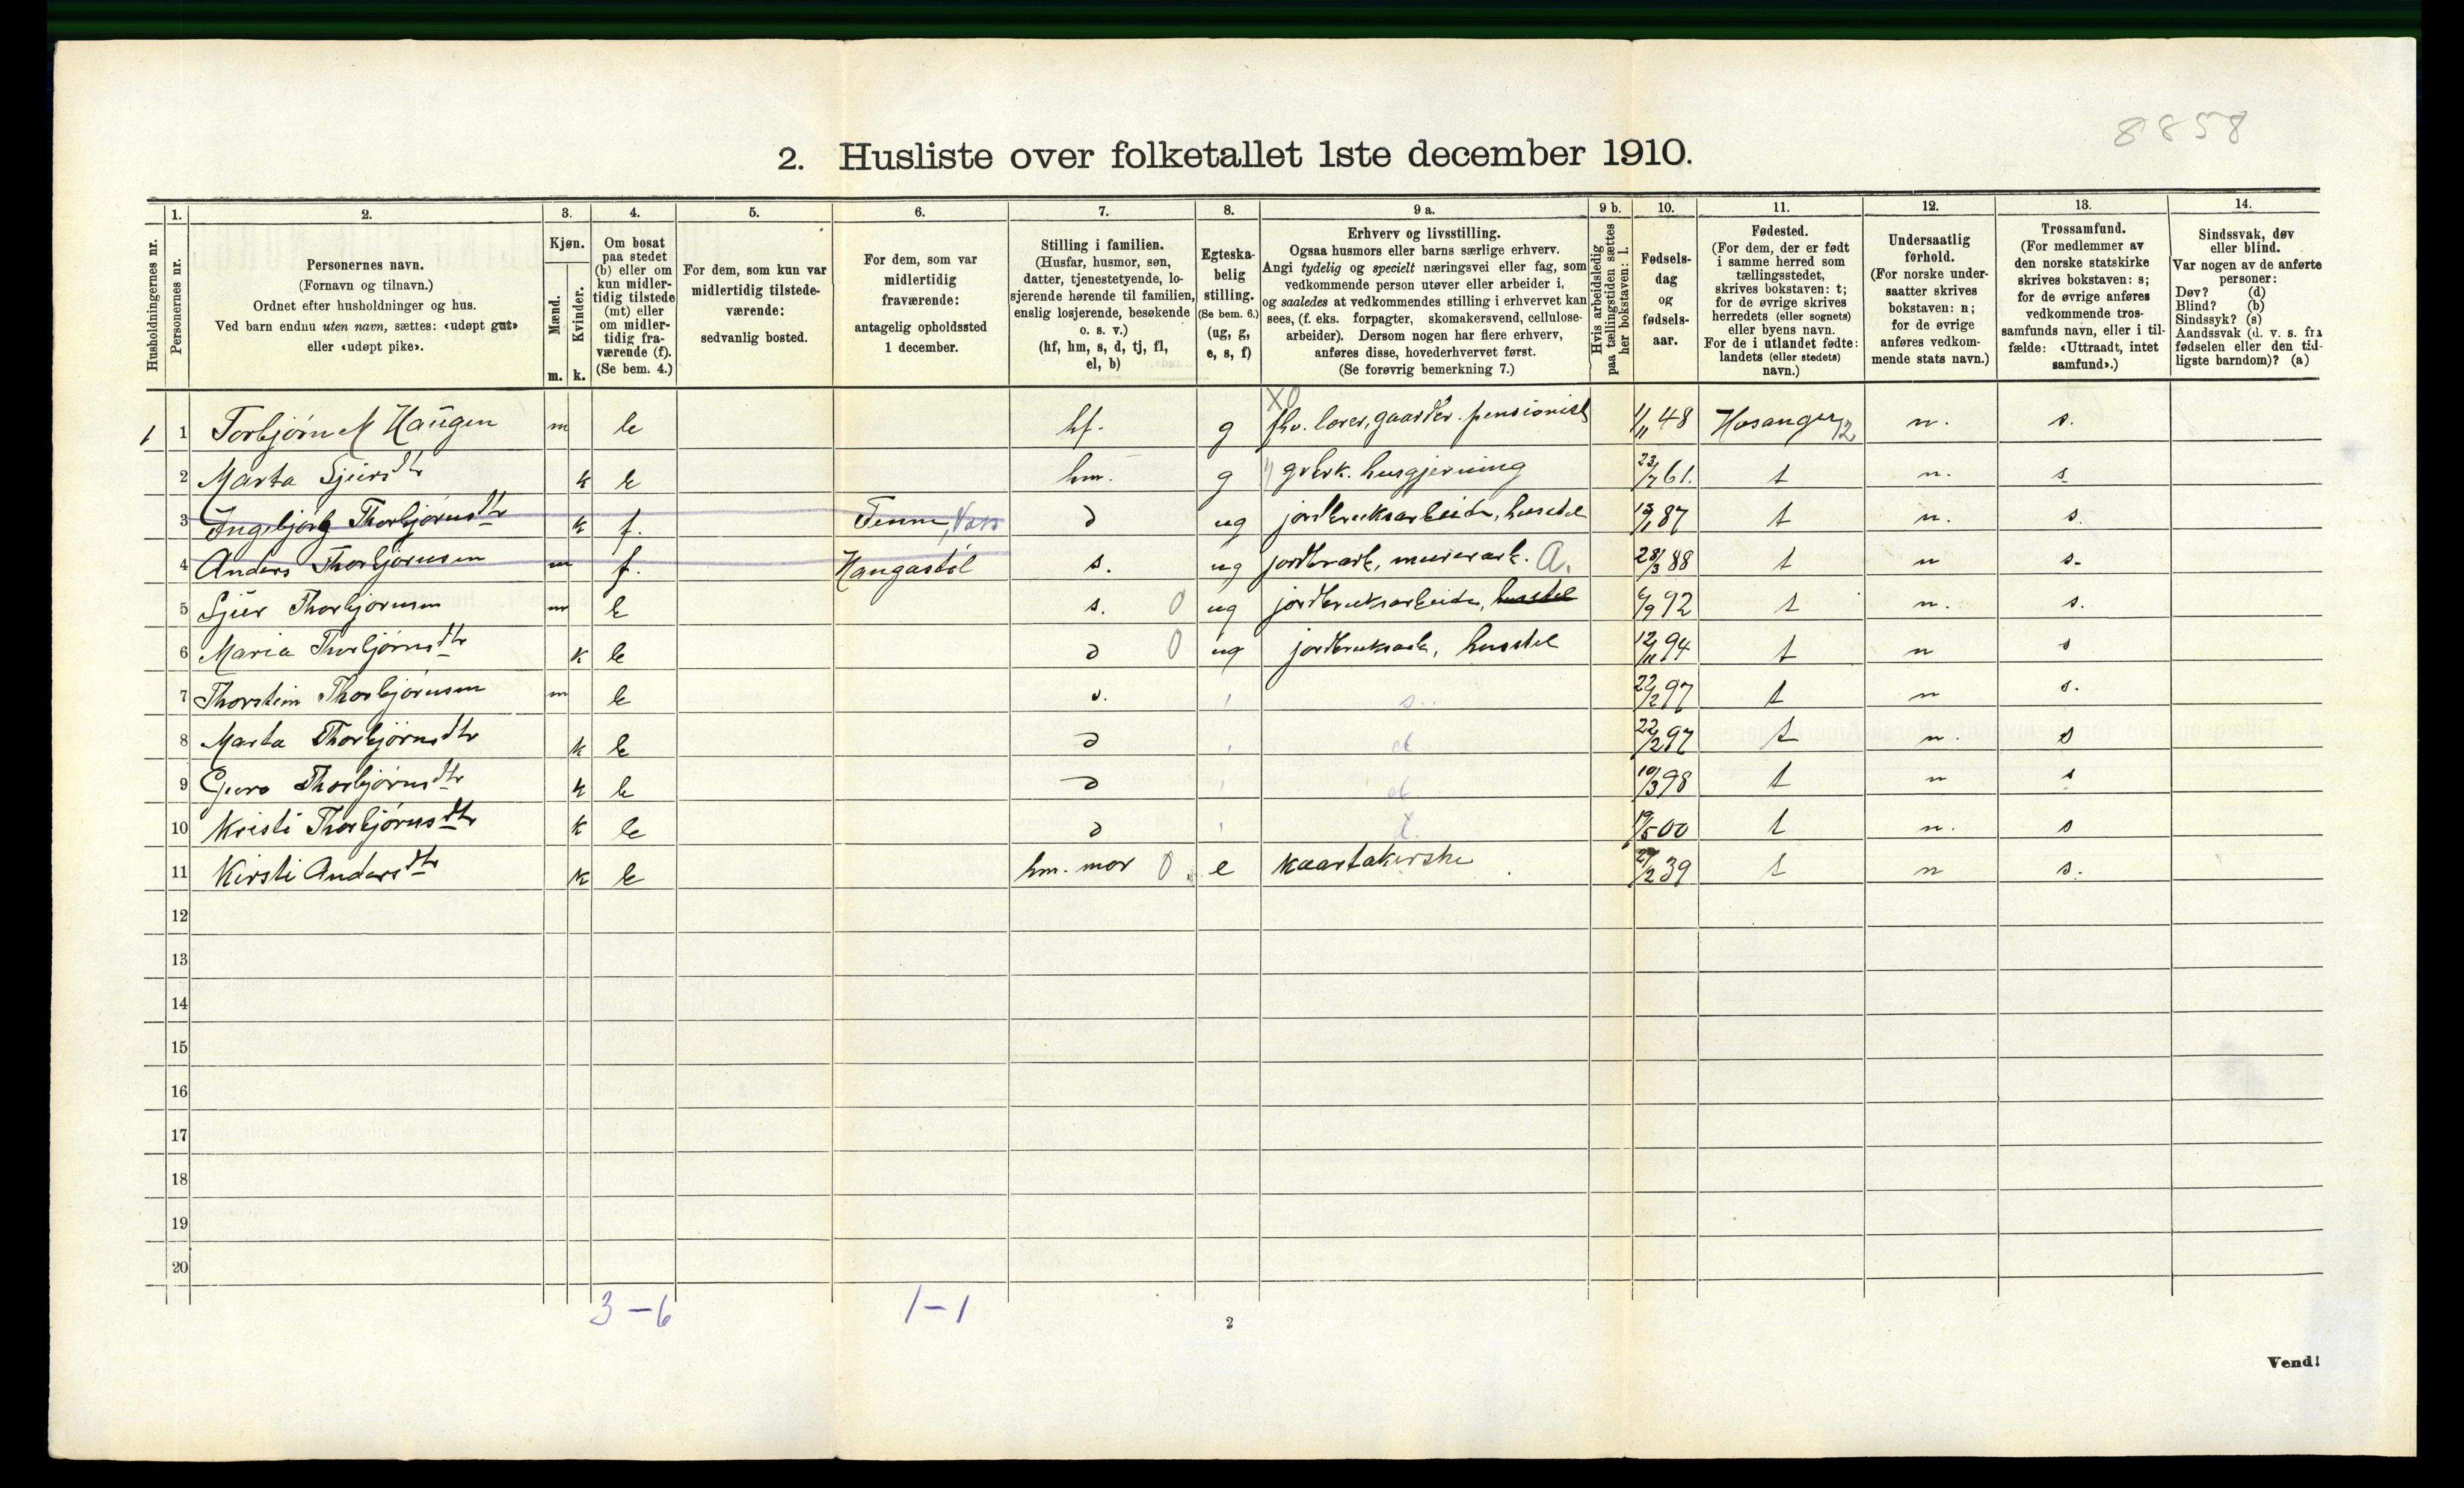 8858
2. Husliste over folketallet 1ste december 1910.
Husholdningernes nr.
1.
Personernes nr.
2.
Personernes navn.
(Fornavn og tilnavn.)
Ordnet efter husholdninger og hus.
Ved barn endnu uten navn, sættes: «udøpt gut»
eller «udøpt pike».
3.
Kjøn.
Mænd.
Kvinder.
m. k.
4.
Om bosat
paa stedet
(b) eller om
kun midler-
tidig tilstede
(mt) eller
om midler-
tidig fra-
værende (f).
(Se bem. 4.)
5.
For dem, som kun var
midlertidig tilstede-
værende:
sedvanlig bosted.
6.
For dem, som var
midlertidig
fraværende:
antagelig opholdssted
1 december.
7.
Stilling i familien.
(Husfar, husmor, søn,
datter, tjenestetyende, lo-
sjerende hørende til familien,
enslig losjerende, besøkende
o. s. v.)
(hf, hm, s, d, tj, fl,
el, b)
8.
Egteska-
belig
stilling.
(Se bem. 6.)
(ug, g,
e, s, f)
9 a.
Erhverv og livsstilling.
Ogsaa husmors eller barns særlige erhverv.
Angi tydelig og specielt næringsvei eller fag, som
vedkommende person utøver eller arbeider i,
og saaledes at vedkommendes stilling i erhvervet kan
sees, (f. eks. forpagter, skomakersvend, cellulose-
arbeider). Dersom nogen har flere erhverv,
anføres disse, hovederhvervet først.
(Se forøvrig bemerkning 7.)
9 b.
Hvis arbeidsledig
paa tællingstiden sættes
her bokstaven: l.
10.
Fødsels-
dag
og
fødsels-
aar.
11.
Fødested.
(For dem, der er født
i samme herred som
tællingsstedet,
skrives bokstaven: t;
for de øvrige skrives
herredets (eller sognets)
eller byens navn.
For de i utlandet fødte:
landets (eller stedets)
navn.)
12.
Undersaatlig
forhold.
(For norske under-
saatter skrives
bokstaven: n;
for de øvrige
anføres vedkom-
mende stats navn.)
13.
Trossamfund.
(For medlemmer av
den norske statskirke
skrives bokstaven: s;
for de øvrige anføres
vedkommende tros-
samfunds navn, eller i til-
fælde: «Uttraadt, intet
samfund».)
14.
Sindssvak, døv
eller blind.
Var nogen av de anførte
personer:
Døv? (d)
Blind? (b)
Sindssyk? (s)
Aandssvak (d. v. s. fra
fødselen eller den tid-
ligste barndom)? (a)
XO
1 1 Torbjørn M Haugen m b hf. g fhv. lærer, gaardbr. pensionist 1/11 48 Hosanger 12 n. s.
2 Marta Sjursdtr k b hm. g grbrk. husgjerning 23/7 61. t n. s
3 Ingebjørg Thorbjørnsdtr k f. Temm, Voss d ug jordbruksarbeide, husstel 13/1 87 t n. s.
4 Anders Thorbjørnsen m f. Haugastøl s. ug jordbrark, murerark. A. 28/3 88 t n s.
5 Sjur Thorbjørnsen m b s. 0 ug jordbruksarbeide, husstel 6/9 92 t n. s.
6 Maria Thorbjørnsdtr k b d 0 ug jordbruksark, husstel 12/11 94 t n s
7 Thorstein Thorbjørnsen m b s. s. 22/2 97 t n s.
8 Marta Thorbjørnsdtr k b d d 22/2 97 t n. s
9 Guro Thorbjørnsdtr k b d d 10/3 98 t n s
10 Kristi Thorbjørnsdtr k b d d. 19/5 00 t n. s
11 Kirsti Andersdtr k b hm. mor 0 e kaartakerske 27/2 39 t n s.
12
13
14
15
16
17
18
19
20
3 – 6 1 – 1
2
Vend!